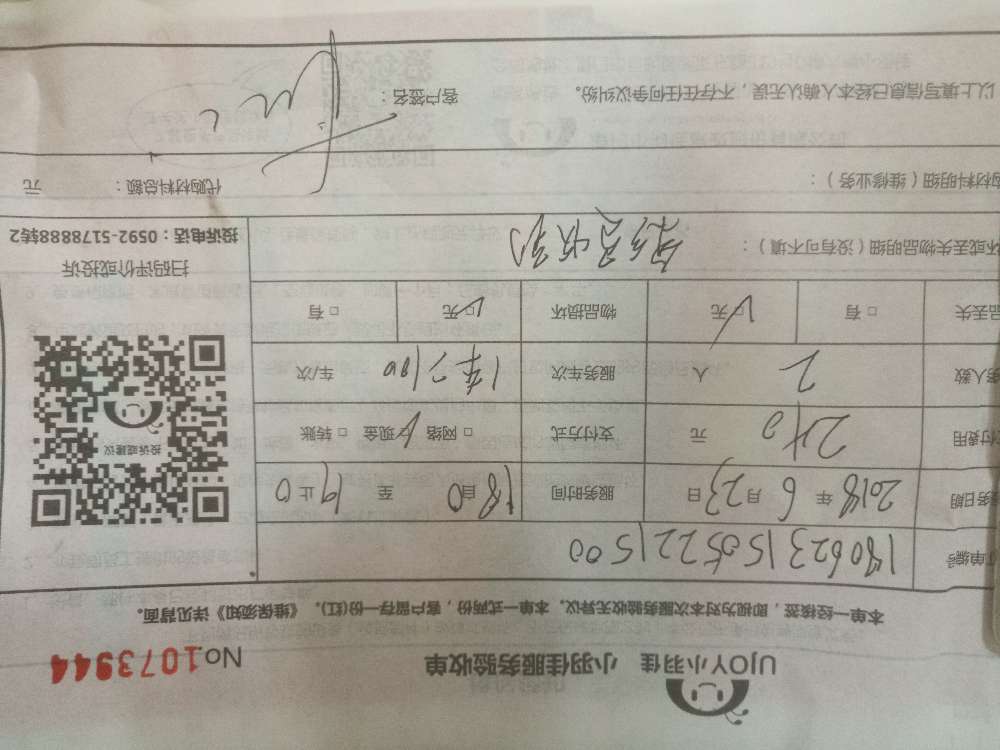 UJOY小羽佳 小羽佳服务验收单 No.1073944
本单一经核签,即视为对本次服务验收无异议,本单一式两份,客户留存一份(红)。《维保须知》详见背面。
单编号 180623150522 1500
务日期 2018 年 6 月 23 日 服务时间 18 0 自 至 19 0 止
付费用 240 元 支付方式 □ 网络 □ 现金 □ 转账
务人数 2 人 服务车次 车/次
品丢失 □ 有 □ 无 物品损坏 □ 无 □ 有
投诉或建议
扫码评价或投诉
投诉电话:0592-5178888转2
坏或丢失物品明细(没有可不填):
购材料明细(维修业务): 代购材料总额: 元
以上填写信息已经本人确认无误,不存在任何争议纠纷。 客户签名: